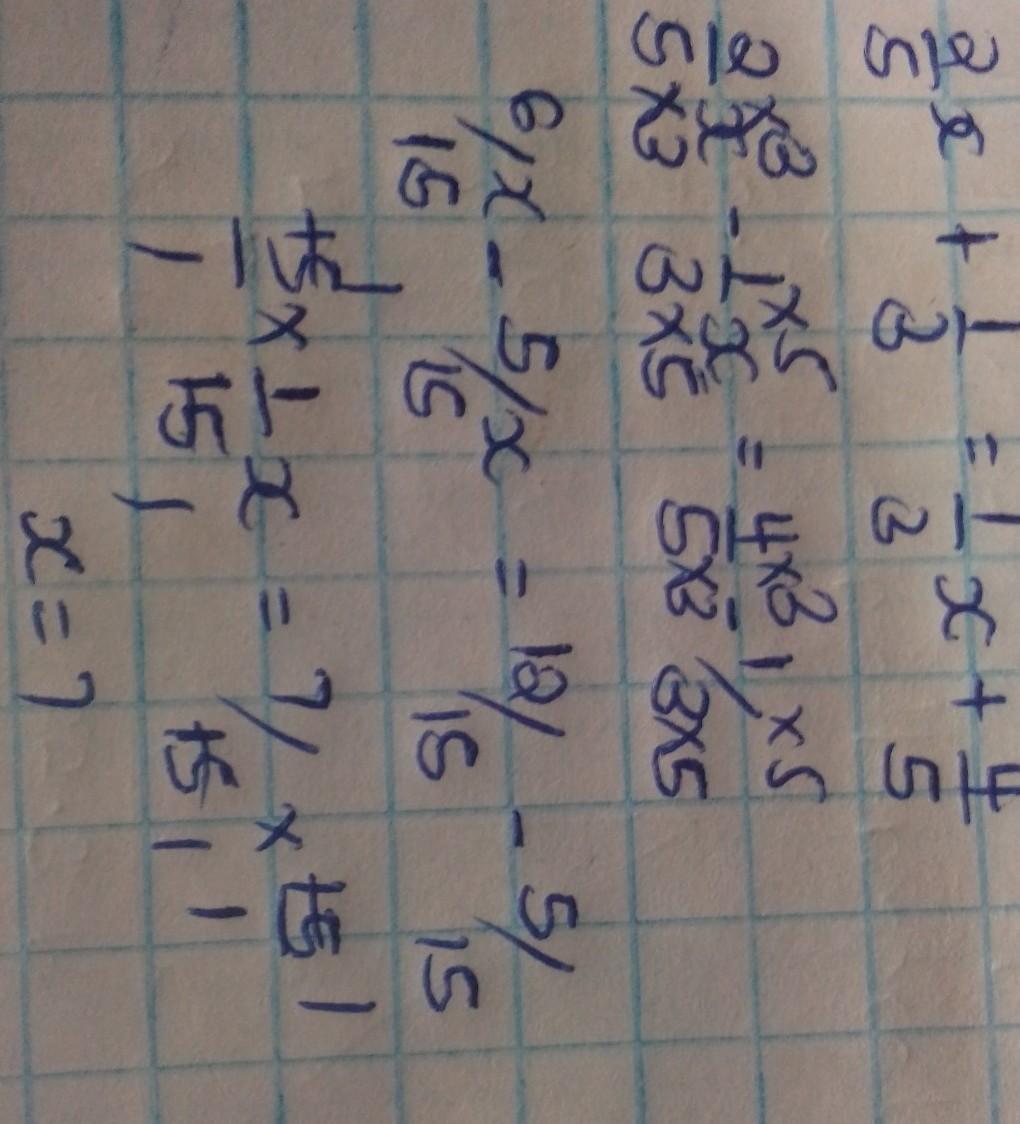 2/5 x + 1/3 = 1/3 x + 4/5
2×3/5×3 x - 1×5/3×5 x = 4×3/5×3 - 1×5/3×5
6/15 x - 5/15 x = 12/15 - 5/15
15/1 × 1/15 x = 7/15 × 15/1
x = 7